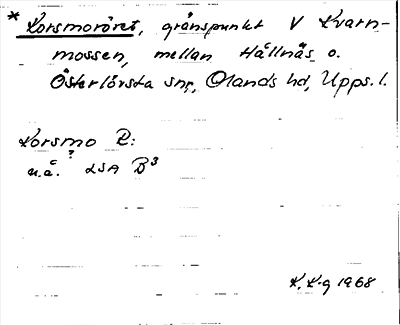 * Korsmoröret, gränspunkt V Kvarn-
mossen, mellan Hållnäs o.
Österlövsta snr, Olands hd, Upps. l.
Korsmo R:
u.å.? LSA B³
K. K-g 1968